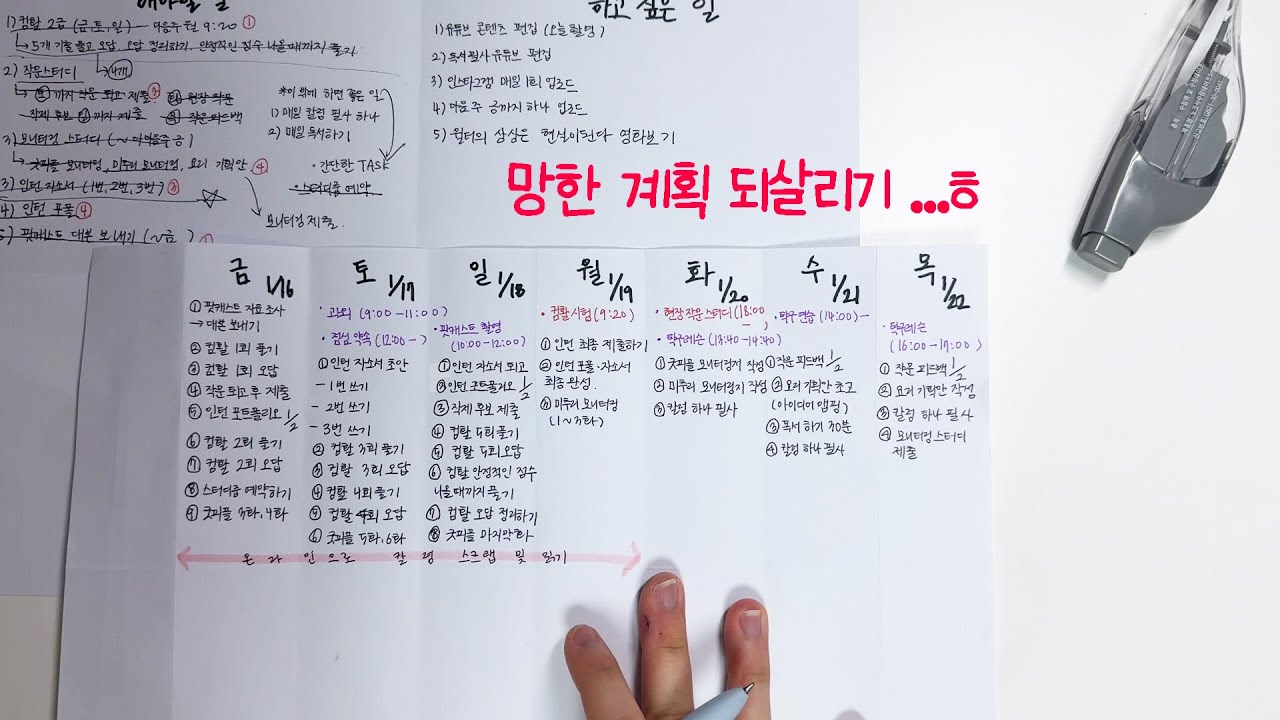 해야할 일
1) 컴활 2급 (금,토,일) - 다음주 월 9:20 ①
↳ 5개 기출 풀고 오답. 오답 정리하기. 안정적인 점수 나올때까지 풀기
2) 작문스터디
까지 작문 퇴고 제출 현장 작문
직제 후보 까지 제출 작문피드백
3) 모니터링 스터디
굿피플 모니터링, 미추리 모니터링, 요리 기획안 ④
3) 인턴 자소서 (1번, 2번, 3번)
4) 인턴 포폴 ④
5) 팟캐스트 대본 보내기
*이 밖에 하면 좋은 일
1) 매일 칼럼 필사 하나
2) 매일 독서하기
· 간단한 TASK
스터디룸 예약
모니터링 제출.
하고 싶은 일
1) 유튜브 콘텐츠 편집 (오늘 촬영)
2) 독서필사 유튜브 편집
3) 인스타그램 매일 1회 업로드
4) 다음 주 금까지 하나 업로드
5) 월터의 상상은 현실이된다 영화보기
망한 계획 되살리기 ...ㅎ
금 1/16
① 팟캐스트 자료조사
→ 대본 보내기
② 컴활 1회 풀기
③ 컴활 1회 오답
④ 작문 퇴고 후 제출
⑤ 인턴 포트폴리오 1/2
⑥ 컴활 2회 풀기
⑦ 컴활 2회 오답
⑧ 스터디룸 예약하기
⑨ 굿피플 3화, 4화
토 1/17
· 과외 (9:00-11:00)
· 점심 약속 (12:00-)
① 인턴 자소서 초안
- 1번 쓰기
- 2번 쓰기
- 3번 쓰기
② 컴활 3회 풀기
③ 컴활 3회 오답
④ 컴활 4회 풀기
⑤ 컴활 4회 오답
⑥ 굿피플 5화, 6화
일 1/18
· 팟캐스트 촬영
(10:00-12:00)
① 인턴 자소서 퇴고
② 인턴 포트폴리오 1/2
③ 직제 후보 제출
④ 컴활 5회 풀기
⑤ 컴활 5회 오답
⑥ 컴활 안정적인 점수
나올때까지 풀기
⑦ 컴활 오답 정리하기
⑧ 굿피플 마지막화
월 1/19
· 컴활시험 (9:20)
① 인턴 최종 제출하기
② 인턴 포폴·자소서
최종 완성.
③ 미추리 모니터링
(1~3화)
화 1/20
· 현장 작문 스터디 (18:00-)
· 탁구레슨 (13:40-14:40)
① 굿피플 모니터링지 작성
② 미추리 모니터링지 작성
③ 칼럼 하나 필사
수 1/21
· 탁구 연습 (14:00)-
① 작문 피드백 1/2
② 요리 기획안 초고
(아이디어 맵핑)
③ 독서 하기 30분
④ 칼럼 하나 필사
목 1/22
· 탁구레슨
(16:00-17:00)
① 작문 피드백 1/2
② 요리 기획안 작성
③ 칼럼 하나 필사
④ 모니터링 스터디
제출
온라인으로 칼럼 스크랩 및 읽기